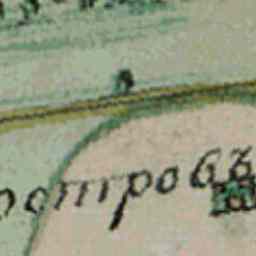 островъ